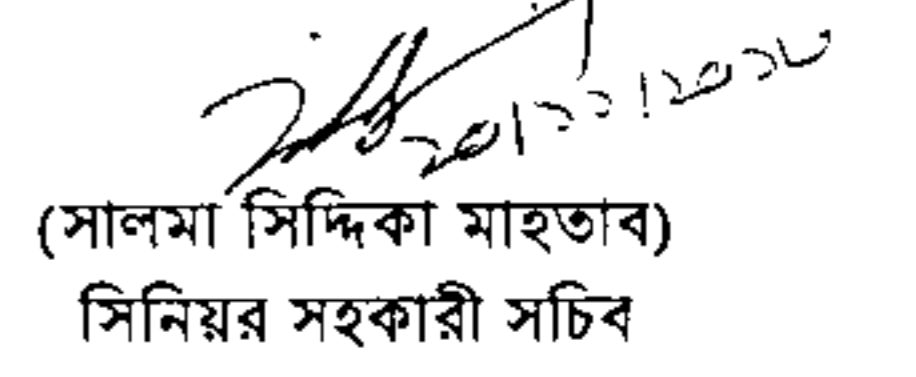 (সালমা সিদ্দিকা মাহতাব)
সিনিয়র সহকারী সচিব